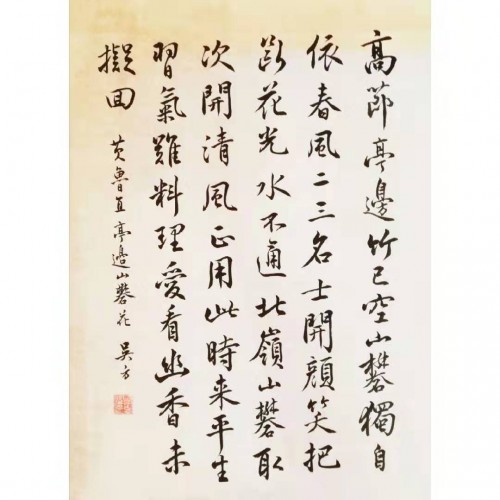 高節亭邊竹已空山礬獨自
依春風二三名士開顔笑把
斷花光水不通北嶺山礬取
次開清風正用此時来平生
習氣難料理愛看幽香未
擬回 黄魯直亭邊山礬花 吴方